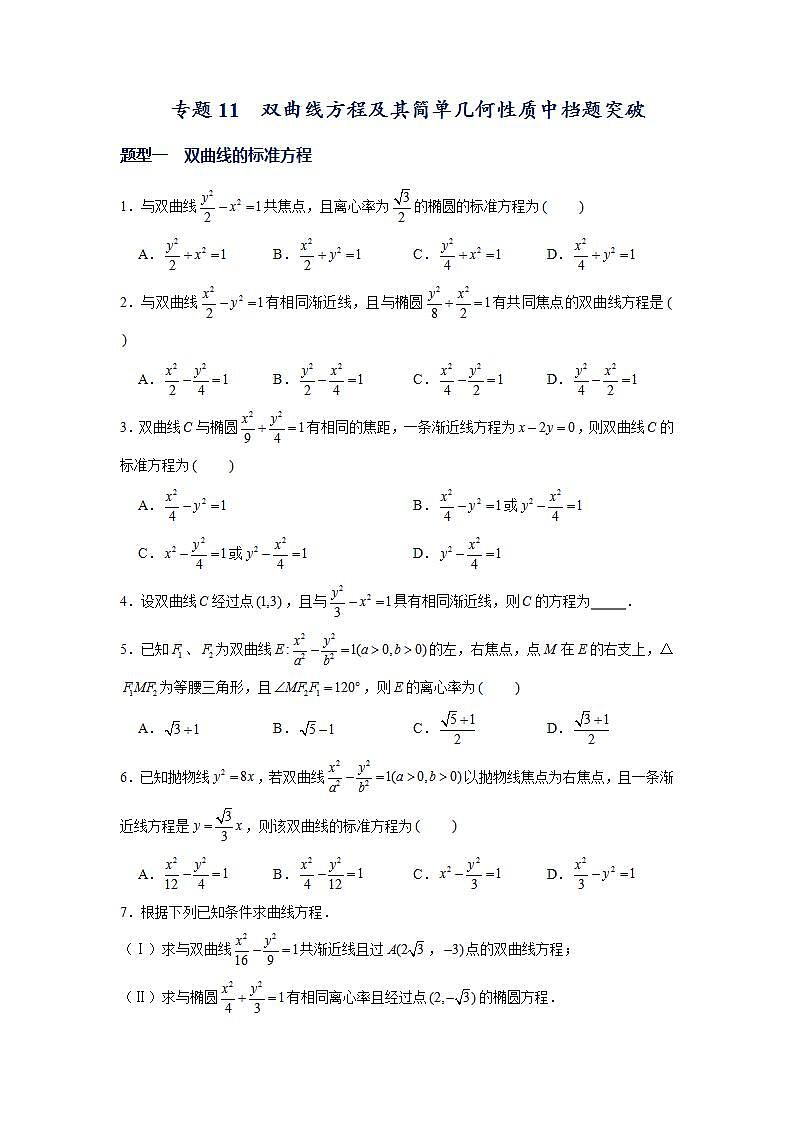 专题 11　双曲线方程及其简单几何性质中档题突破
题型一　双曲线的标准方程
1．与双曲线 $\frac{y^2}{2}-x^2=1$ 共焦点，且离心率为 $\frac{\sqrt{3}}{2}$ 的椭圆的标准方程为 (　　)
A．$\frac{y^2}{2}+x^2=1$　　B．$\frac{x^2}{2}+y^2=1$　　C．$\frac{y^2}{4}+x^2=1$　　D．$\frac{x^2}{4}+y^2=1$
2．与双曲线 $\frac{x^2}{2}-y^2=1$ 有相同渐近线，且与椭圆 $\frac{y^2}{8}+\frac{x^2}{2}=1$ 有共同焦点的双曲线方程是 (
)
A．$\frac{x^2}{2}-\frac{y^2}{4}=1$　　B．$\frac{y^2}{2}-\frac{x^2}{4}=1$　　C．$\frac{x^2}{4}-\frac{y^2}{2}=1$　　D．$\frac{y^2}{4}-\frac{x^2}{2}=1$
3．双曲线 C 与椭圆 $\frac{x^2}{9}+\frac{y^2}{4}=1$ 有相同的焦距，一条渐近线方程为 $x-2y=0$，则双曲线 C 的
标准方程为 (　　)
A．$\frac{x^2}{4}-y^2=1$　　B．$\frac{x^2}{4}-y^2=1$ 或 $y^2-\frac{x^2}{4}=1$
C．$x^2-\frac{y^2}{4}=1$ 或 $y^2-\frac{x^2}{4}=1$　　D．$y^2-\frac{x^2}{4}=1$
4．设双曲线 C 经过点 (1,3)，且与 $\frac{y^2}{3}-x^2=1$ 具有相同渐近线，则 C 的方程为_____．
5．已知 $F_1$、$F_2$ 为双曲线 $E:\frac{x^2}{a^2}-\frac{y^2}{b^2}=1(a>0,b>0)$ 的左，右焦点，点 M 在 E 的右支上，△
$F_1MF_2$ 为等腰三角形，且 $\angle MF_2F_1=120°$，则 E 的离心率为 (　　)
A．$\sqrt{3}+1$　　B．$\sqrt{5}-1$　　C．$\frac{\sqrt{5}+1}{2}$　　D．$\frac{\sqrt{3}+1}{2}$
6．已知抛物线 $y^2=8x$，若双曲线 $\frac{x^2}{a^2}-\frac{y^2}{b^2}=1(a>0,b>0)$ 以抛物线焦点为右焦点，且一条渐
近线方程是 $y=\frac{\sqrt{3}}{3}x$，则该双曲线的标准方程为 (　　)
A．$\frac{x^2}{12}-\frac{y^2}{4}=1$　　B．$\frac{x^2}{4}-\frac{y^2}{12}=1$　　C．$x^2-\frac{y^2}{3}=1$　　D．$\frac{x^2}{3}-y^2=1$
7．根据下列已知条件求曲线方程．
（Ⅰ）求与双曲线 $\frac{x^2}{16}-\frac{y^2}{9}=1$ 共渐近线且过 $A(2\sqrt{3}，-3)$ 点的双曲线方程；
（Ⅱ）求与椭圆 $\frac{x^2}{4}+\frac{y^2}{3}=1$ 有相同离心率且经过点 $(2,-\sqrt{3})$ 的椭圆方程．